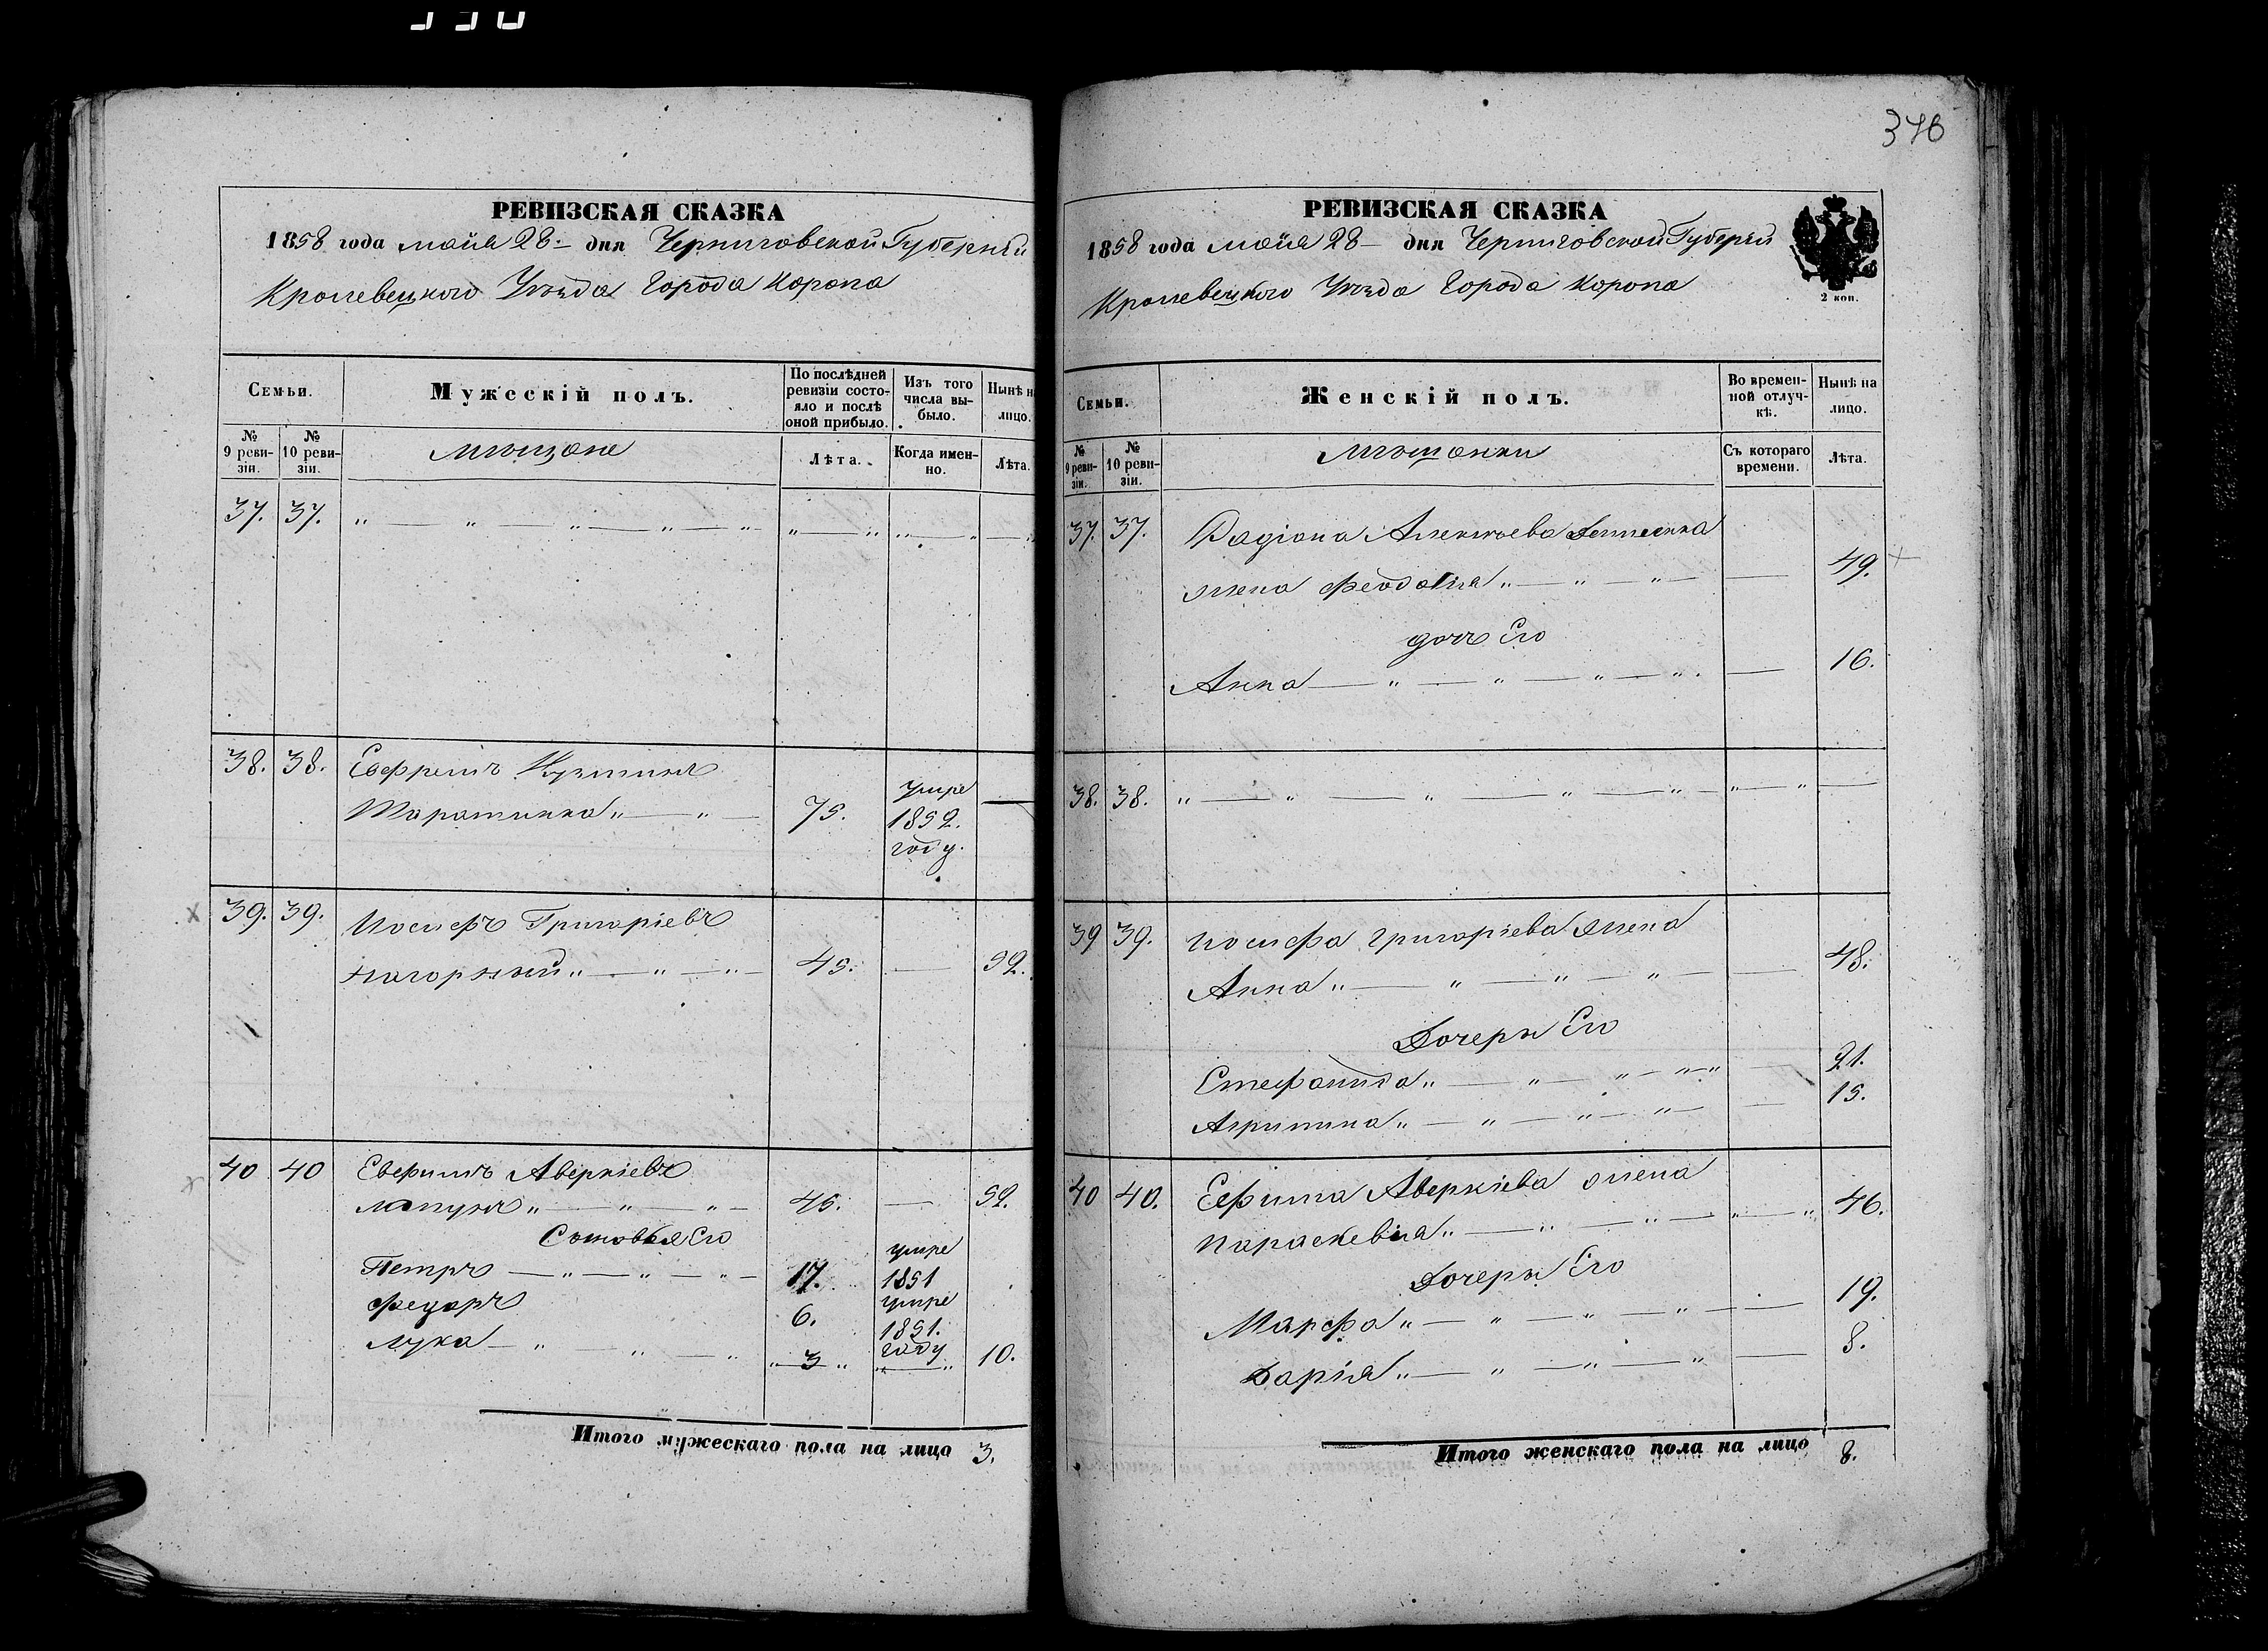 376
РЕВИЗСКАЯ СКАЗКА
1858 года майя 28 дня Черниговской Губерніи
Кролевецкого Уѣзда Города Коропа
Семьи.
Мужескій полъ.
По послѣдней ревизіи состояло и послѣ оной прибыло.
Изъ того числа выбыло.
Нынѣ на лицо.
№ 9 ревизіи.
№ 10 ревизіи.
мѣщане
Лѣта.
Когда именно.
Лѣта.
37. 37.
38. 38. Евфремъ Кузминъ
Тараненко 75. умре 1852. году.
39. 39. Иосифъ Григоріевъ
Нагорный 45. 52.
40 40 Евфимъ Аверкіевъ
45. 52.
Сыновья Его
Петръ 17. умре 1851
Федоръ 6. умре 1851. году
Лука 3 10.
Итого мужескаго пола на лицо 3.
РЕВИЗСКАЯ СКАЗКА
1858 года майя 28 дня Черниговской Губерніи
Кролевецкого Уѣзда Города Коропа
2 коп.
Семьи.
Женскій полъ.
Во временной отлучкѣ.
Нынѣ на лицо.
№ 9 ревизіи.
№ 10 ревизіи.
мѣщанки
Съ котораго времени.
Лѣта.
37. 37. Радіона Алексѣева
жена Феодосія 49.
дочь Его
Анна 16.
38. 38.
39 39. Иосифа Григоріева жена
Анна 48.
Дочери Его
Стефанида 21.
Агрипина 15.
40 40. Ефима Аверкіева жена
Параскевія 46.
Дочери Его
Марфа 19.
Дарія 8.
Итого женскаго пола на лицо 8.